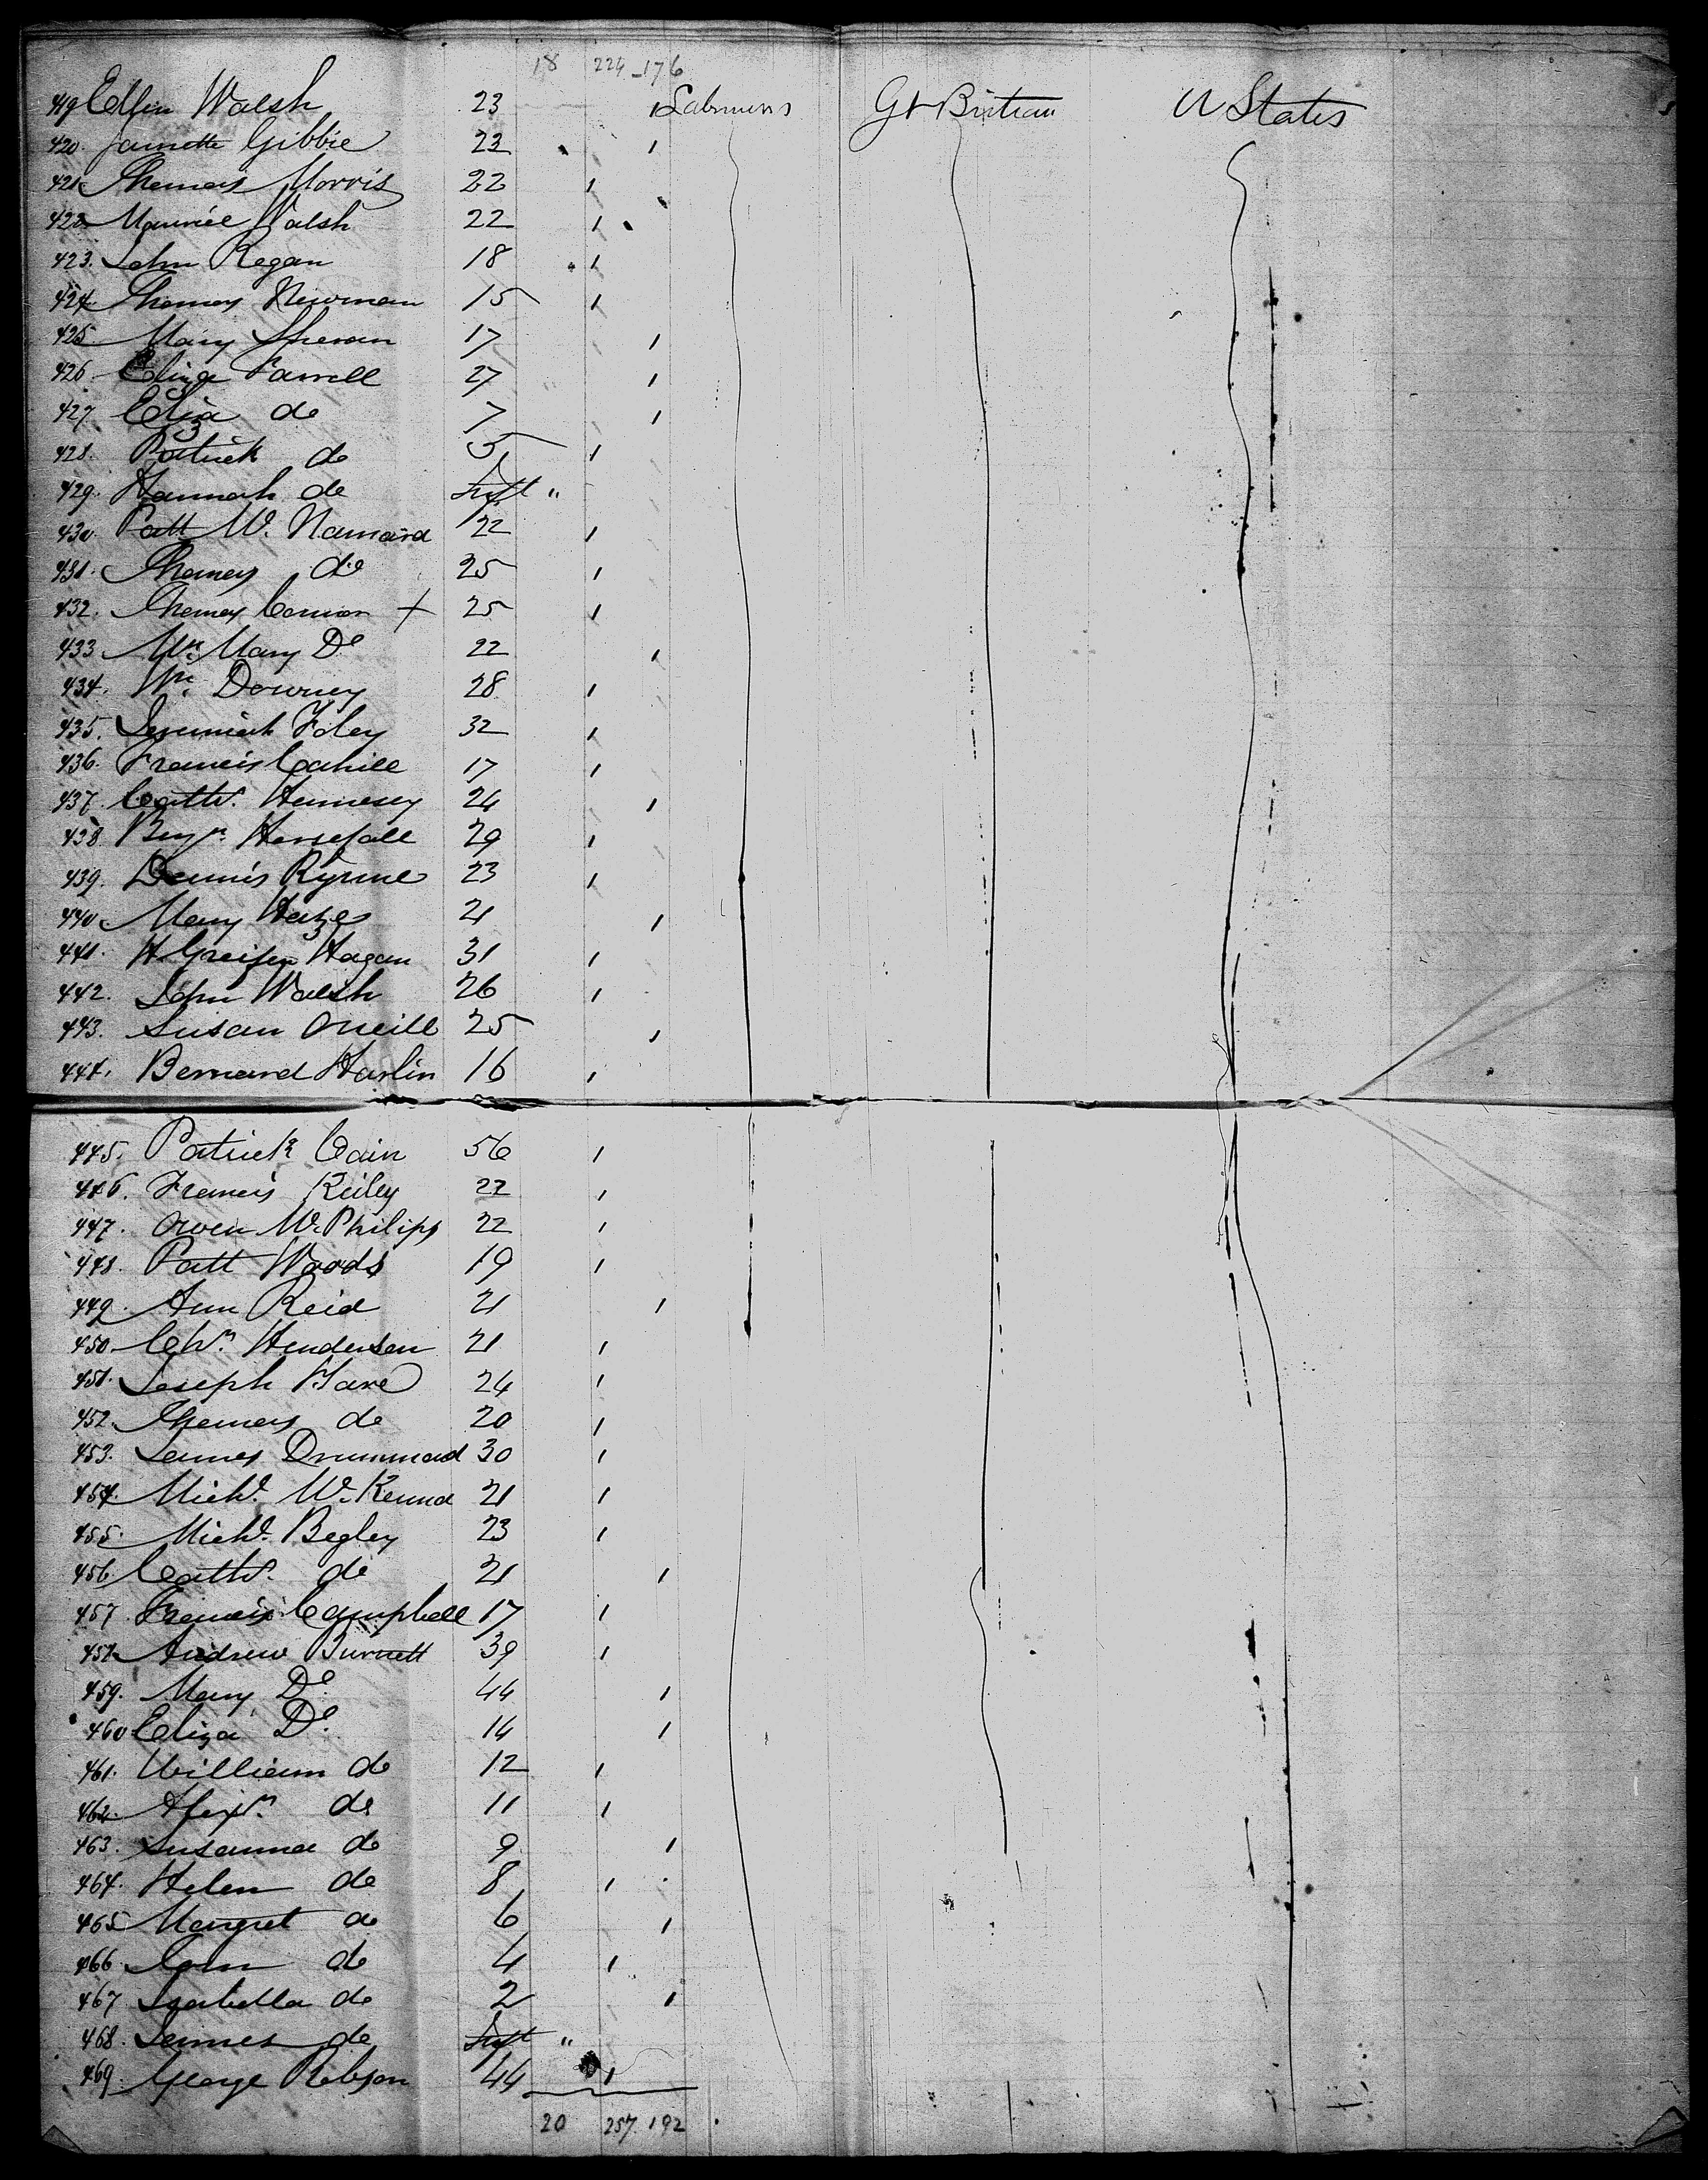 18 224 176
419 Ellen Walsh 23 1 Labourers Gt Britain U States
420. Jannette Gibbie 23 1
421. Thomas Morris 22 1
422 Maurice Walsh 22 1
423. John Regan 18 1
424. Thomas Newman 15 1
425 Mary Sheran 17 1
426. Eliza Farrell 27 1
427. Eliza do 7 1
428. Patrick do 5 1
429. Hannah do Inft "
430. Patt Mc Namara 22 1
431. Thomas do 25 1
432. Thomas Connor + 25 1
433 Mrs Mary Do 22 1
434. Wm Downey 28 1
435. Jeremiah Foley 32 1
436. Francis Cahill 17 1
437. Cathe. Hennesey 24 1
438. Benjn. Horsefall 29 1
439. Dennis Ryrne 23 1
440. Mary Hayes 21 1
441. H Hagan 31 1
442. John Walsh 26 1
443. Susan Oneill 25 1
444. Bernard Harlin 16 1
445. Patrick Cain 56 1
446. Francis Reiley 22 1
447. Owen Mc Philips 22 1
448. Patt Woods 19 1
449. Ann Reid 21 1
450. Chr. Henderson 21 1
451. Joseph Hare 24 1
452. Thomas do 20 1
453. James Drummond 30 1
454. Michl. Mc Kenna 21 1
455. Michl. Begley 23 1
456. Cathe. do 21 1
457. Francis Campbell 17 1
458. Andrew Burnett 39 1
459. Mary Do. 44 1
460 Eliza Do. 14 1
461. William do 12 1
462. Alexr. do 11 1
463. Susanna do 9 1
464. Helen do 8 1
465 Margret do 6 1
466. John do 4 1
467 Isabella do 2 1
468. James do Inft "
469. George Robson 44 1
20 257 192